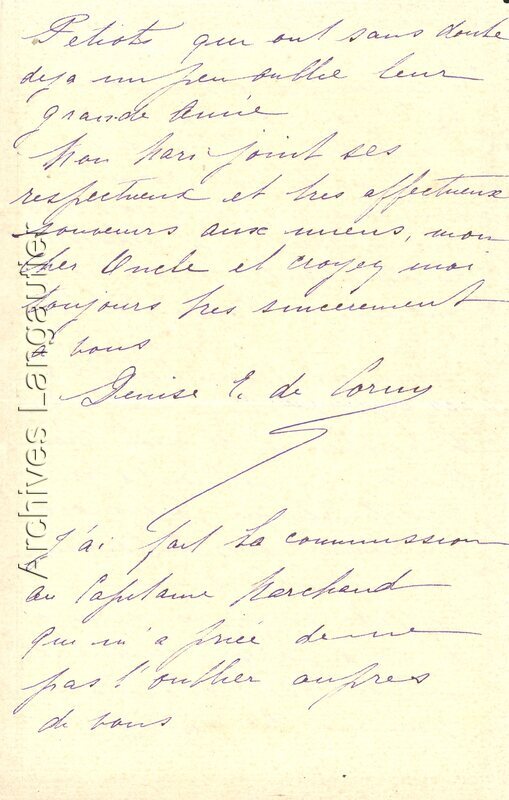 Petiots qui ont sans doute
deja un peu oublie leur
grande Amie
Mon Mari joint ses
respectueux et tres affectueux
souvenirs aux miens, mon
cher Oncle et croyez moi
toujours tres sincerement
a vous
Denise E. de Corny
J'ai fait la commission
au Capitaine Marchand
qui m'a priée de ne
pas l'oublier aupres
de vous
Archives Langautier